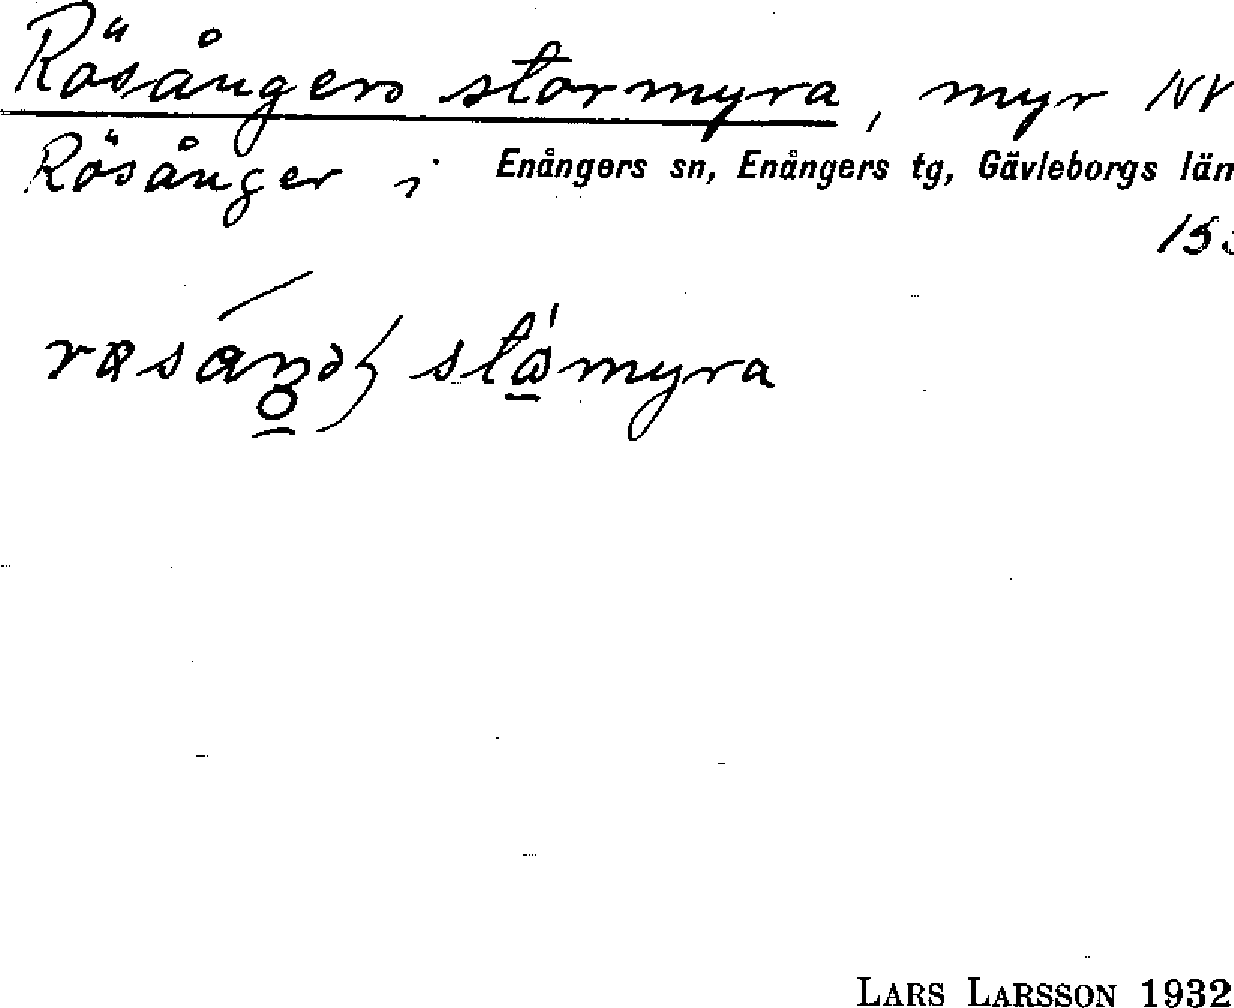 Rösångers stormyra, myr NV
Rösånger i Enångers sn, Enångers tg, Gävleborgs län
stámyra
LARS LARSSON 1932